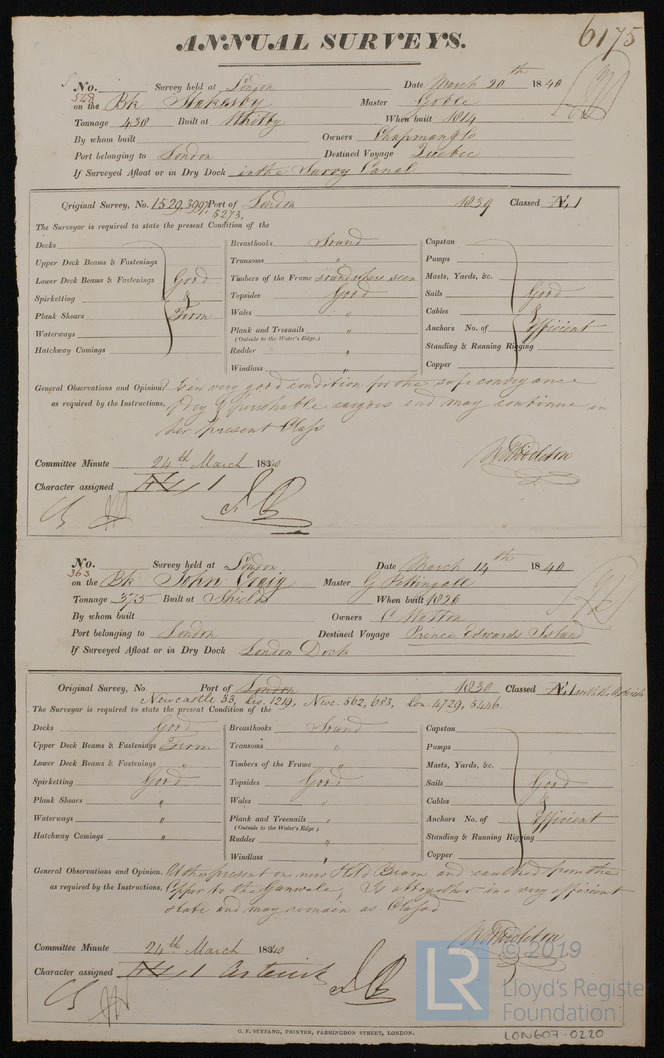 6175
ANNUAL SURVEYS.
No. 548 Survey held at London Date March 20th 1840
on the Bk Stakesby Master Goble
Tonnage 430 Built at Whitby When built 1814
By whom built Owners Chapman & Co
Port belonging to London Destined Voyage Quebec
If Surveyed Afloat or in Dry Dock in the Surry Canal
Original Survey, No. 1529, 3997, 5273, Port of London 1839 Classed Æ, 1
The Surveyor is required to state the present Condition of the
Decks
Upper Deck Beams & Fastenings
Lower Deck Beams & Fastenings
Spirketting
Plank Shears
Waterways
Hatchway Comings
Good
&
Firm
Breasthooks Sound
Transoms "
Timbers of the Frame sound where seen
Topsides Good
Wales "
Plank and Treenails "
(Outside to the Water's Edge.)
Rudder "
Windlass "
Capstan
Pumps
Masts, Yards, &c.
Sails
Cables
Anchors No. of
Standing & Running Rigging
Copper
Good
&
Efficient
General Observations and Opinion, Is in very good condition for the safe conveyance
as required by the Instructions, Dry & perishable cargoes and may continue in
her present Class
Committee Minute 24th March 1840
Character assigned Æ 1
No. 363 Survey held at London Date March 14th 1840
on the Bk John Craig Master G Pettingall
Tonnage 375 Built at Shields When built 1826
By whom built Owners
Port belonging to London Destined Voyage Prince Edwards Island
If Surveyed Afloat or in Dry Dock London Dock
Original Survey, No. Port of London 1830 Classed Æ, 1 with the Asterisk
Newcastle 33, Liv. 1219, Newc. 562, 683, Lon 4729, 5446
The Surveyor is required to state the present Condition of the
Decks Good
Upper Deck Beams & Fastenings Firm
Lower Deck Beams & Fastenings "
Spirketting Good
Plank Shears "
Waterways "
Hatchway Comings "
Breasthooks Sound
Transoms "
Timbers of the Frame "
Topsides Good
Wales "
Plank and Treenails "
(Outside to the Water's Edge.)
Rudder "
Windlass "
Capstan
Pumps
Masts, Yards, &c.
Sails
Cables
Anchors No. of
Standing & Running Rigging
Copper
Good
&
Efficient
General Observations and Opinion, Has at present one new Hold Beam and caulked from the
as required by the Instructions, Copper to the Gunwale, Is altogether in a very efficient
state and may remain as Classed
Committee Minute 24th March 1840
Character assigned Æ 1 Asterisk
G. F. SEYFANG, PRINTER, FARRINGDON STREET, LONDON.
LR
© 2019
Lloyd's Register
Foundation
LON607-0220